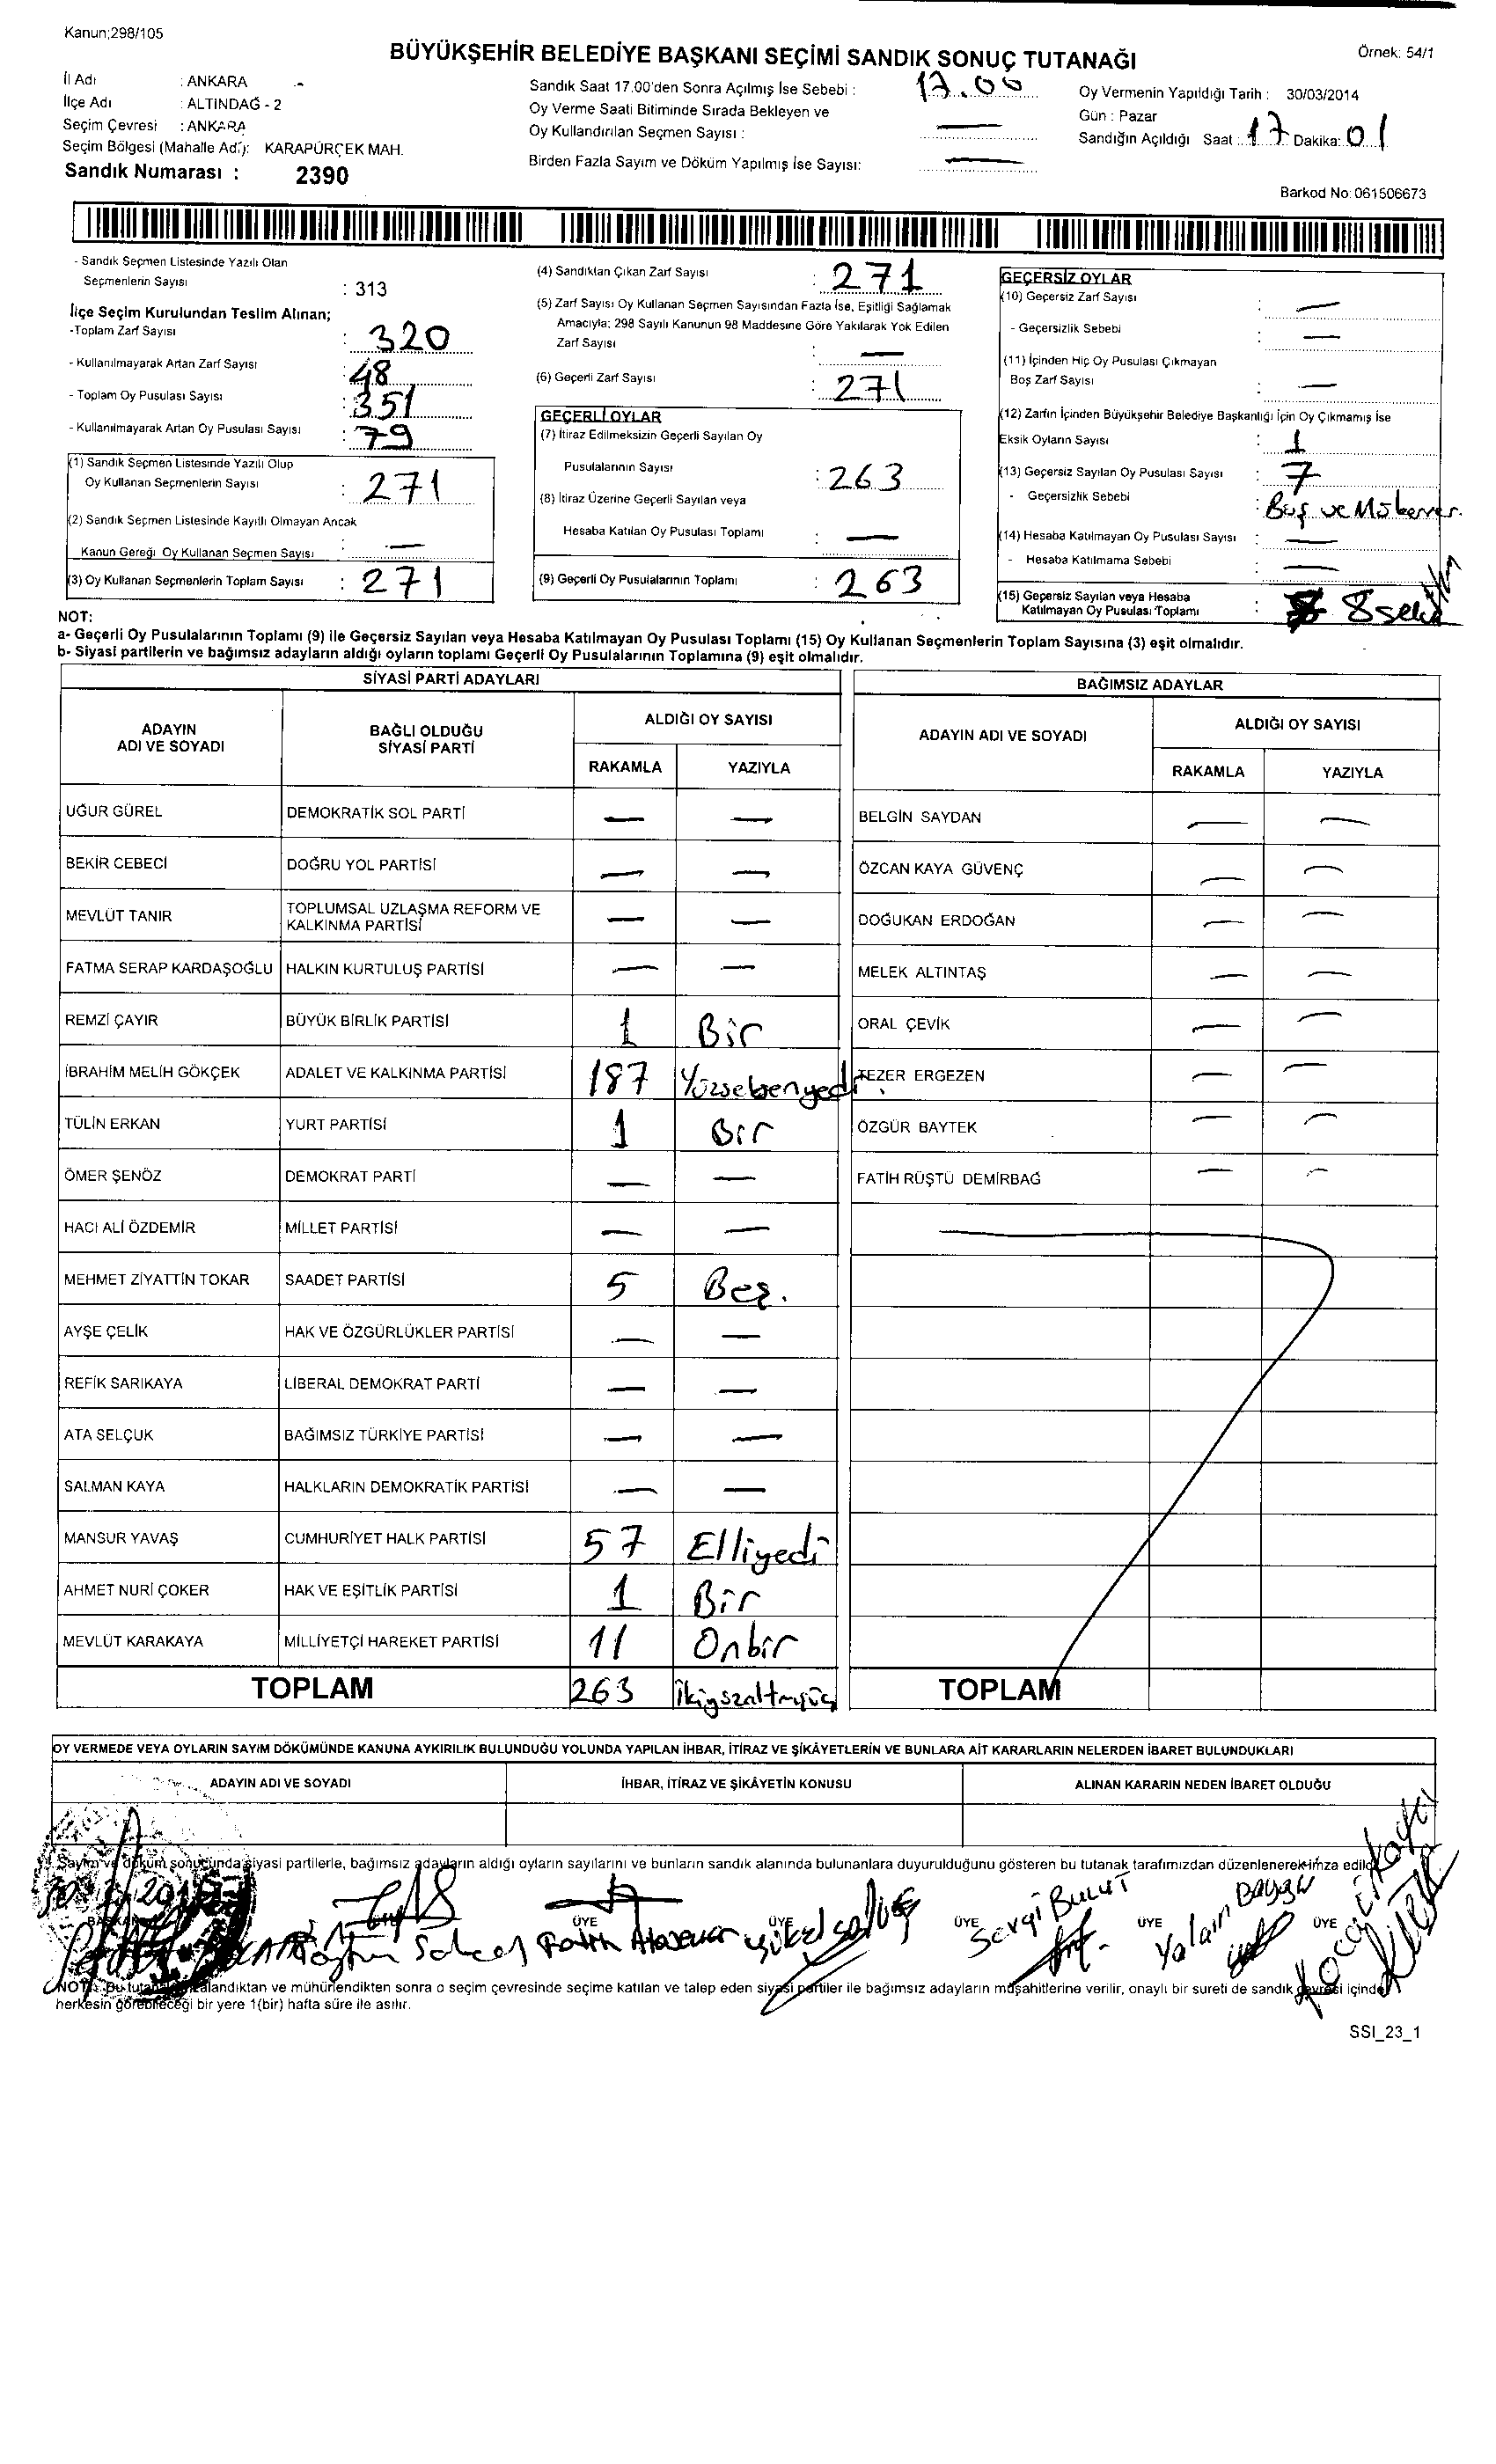 Kanun;298/105
BÜYÜKŞEHİR BELEDİYE BAŞKANI SEÇİMİ SANDIK SONUÇ TUTANAĞI
Örnek: 54/1
İl Adı : ANKARA
İlçe Adı : ALTINDAĞ - 2
Seçim Çevresi : ANKARA
Seçim Bölgesi (Mahalle Adı): KARAPÜRÇEK MAH.
Sandık Numarası : 2390
Sandık Saat 17.00'den Sonra Açılmış İse Sebebi : 17.00
Oy Verme Saati Bitiminde Sırada Bekleyen ve
Oy Kullandırılan Seçmen Sayısı : —
Birden Fazla Sayım ve Döküm Yapılmış İse Sayısı: —
Oy Vermenin Yapıldığı Tarih : 30/03/2014
Gün : Pazar
Sandığın Açıldığı Saat : 17 Dakika: 01
Barkod No: 061506673
- Sandık Seçmen Listesinde Yazılı Olan
Seçmenlerin Sayısı : 313
İlçe Seçim Kurulundan Teslim Alınan;
-Toplam Zarf Sayısı : 320
- Kullanılmayarak Artan Zarf Sayısı : 48
- Toplam Oy Pusulası Sayısı : 351
- Kullanılmayarak Artan Oy Pusulası Sayısı : 79
(1) Sandık Seçmen Listesinde Yazılı Olup
Oy Kullanan Seçmenlerin Sayısı : 271
(2) Sandık Seçmen Listesinde Kayıtlı Olmayan Ancak
Kanun Gereği Oy Kullanan Seçmen Sayısı : —
(3) Oy Kullanan Seçmenlerin Toplam Sayısı : 271
(4) Sandıktan Çıkan Zarf Sayısı : 271
(5) Zarf Sayısı Oy Kullanan Seçmen Sayısından Fazla İse, Eşitliği Sağlamak
Amacıyla: 298 Sayılı Kanunun 98 Maddesine Göre Yakılarak Yok Edilen
Zarf Sayısı : —
(6) Geçerli Zarf Sayısı : 271
GEÇERLİ OYLAR
(7) İtiraz Edilmeksizin Geçerli Sayılan Oy
Pusulalarının Sayısı : 263
(8) İtiraz Üzerine Geçerli Sayılan veya
Hesaba Katılan Oy Pusulası Toplamı : —
(9) Geçerli Oy Pusulalarının Toplamı : 263
GEÇERSİZ OYLAR
(10) Geçersiz Zarf Sayısı : —
- Geçersizlik Sebebi : —
(11) İçinden Hiç Oy Pusulası Çıkmayan
Boş Zarf Sayısı : —
(12) Zarfın İçinden Büyükşehir Belediye Başkanlığı İçin Oy Çıkmamış İse
Eksik Oyların Sayısı : 1
(13) Geçersiz Sayılan Oy Pusulası Sayısı : 7
- Geçersizlik Sebebi : Boş ve
(14) Hesaba Katılmayan Oy Pusulası Sayısı : —
- Hesaba Katılmama Sebebi : —
(15) Geçersiz Sayılan veya Hesaba
Katılmayan Oy Pusulası Toplamı : 8 sekiz
NOT:
a- Geçerli Oy Pusulalarının Toplamı (9) ile Geçersiz Sayılan veya Hesaba Katılmayan Oy Pusulası Toplamı (15) Oy Kullanan Seçmenlerin Toplam Sayısına (3) eşit olmalıdır.
b- Siyasi partilerin ve bağımsız adayların aldığı oyların toplamı Geçerli Oy Pusulalarının Toplamına (9) eşit olmalıdır.
SİYASİ PARTİ ADAYLARI
ADAYIN ADI VE SOYADI
BAĞLI OLDUĞU SİYASİ PARTİ
ALDIĞI OY SAYISI
RAKAMLA YAZIYLA
UĞUR GÜREL DEMOKRATİK SOL PARTİ — —
BEKİR CEBECİ DOĞRU YOL PARTİSİ — —
MEVLÜT TANIR TOPLUMSAL UZLAŞMA REFORM VE KALKINMA PARTİSİ — —
FATMA SERAP KARDAŞOĞLU HALKIN KURTULUŞ PARTİSİ — —
REMZİ ÇAYIR BÜYÜK BİRLİK PARTİSİ 1 Bir
İBRAHİM MELİH GÖKÇEK ADALET VE KALKINMA PARTİSİ 187 Yüzseksenyedi
TÜLİN ERKAN YURT PARTİSİ 1 Bir
ÖMER ŞENÖZ DEMOKRAT PARTİ — —
HACI ALİ ÖZDEMİR MİLLET PARTİSİ — —
MEHMET ZİYATTİN TOKAR SAADET PARTİSİ 5 Beş.
AYŞE ÇELİK HAK VE ÖZGÜRLÜKLER PARTİSİ — —
REFİK SARIKAYA LİBERAL DEMOKRAT PARTİ — —
ATA SELÇUK BAĞIMSIZ TÜRKİYE PARTİSİ — —
SALMAN KAYA HALKLARIN DEMOKRATİK PARTİSİ — —
MANSUR YAVAŞ CUMHURİYET HALK PARTİSİ 57 Elliyedi
AHMET NURİ ÇOKER HAK VE EŞİTLİK PARTİSİ 1 Bir
MEVLÜT KARAKAYA MİLLİYETÇİ HAREKET PARTİSİ 11 Onbir
TOPLAM 263 İkiyüzaltmışüç
BAĞIMSIZ ADAYLAR
ADAYIN ADI VE SOYADI
ALDIĞI OY SAYISI
RAKAMLA YAZIYLA
BELGİN SAYDAN — —
ÖZCAN KAYA GÜVENÇ — —
DOĞUKAN ERDOĞAN — —
MELEK ALTINTAŞ — —
ORAL ÇEVİK — —
TEZER ERGEZEN — —
ÖZGÜR BAYTEK — —
FATİH RÜŞTÜ DEMİRBAĞ — —
TOPLAM
OY VERMEDE VEYA OYLARIN SAYIM DÖKÜMÜNDE KANUNA AYKIRILIK BULUNDUĞU YOLUNDA YAPILAN İHBAR, İTİRAZ VE ŞİKÂYETLERİN VE BUNLARA AİT KARARLARIN NELERDEN İBARET BULUNDUKLARI
ADAYIN ADI VE SOYADI İHBAR, İTİRAZ VE ŞİKÂYETİN KONUSU ALINAN KARARIN NEDEN İBARET OLDUĞU
Sayım ve döküm sonucunda siyasi partilerle, bağımsız adayların aldığı oyların sayılarını ve bunların sandık alanında bulunanlara duyurulduğunu gösteren bu tutanak tarafımızdan düzenlenerek imza edildi.
BAŞKAN ÜYE ÜYE ÜYE ÜYE ÜYE
Fatih Sevgi Bulut Yalçın
NOT: Bu tutanak imzalandıktan ve mühürlendikten sonra o seçim çevresinde seçime katılan ve talep eden siyasi partiler ile bağımsız adayların müşahitlerine verilir, onaylı bir sureti de sandık çevresi içinde
herkesin görebileceği bir yere 1(bir) hafta süre ile asılır.
SSI_23_1